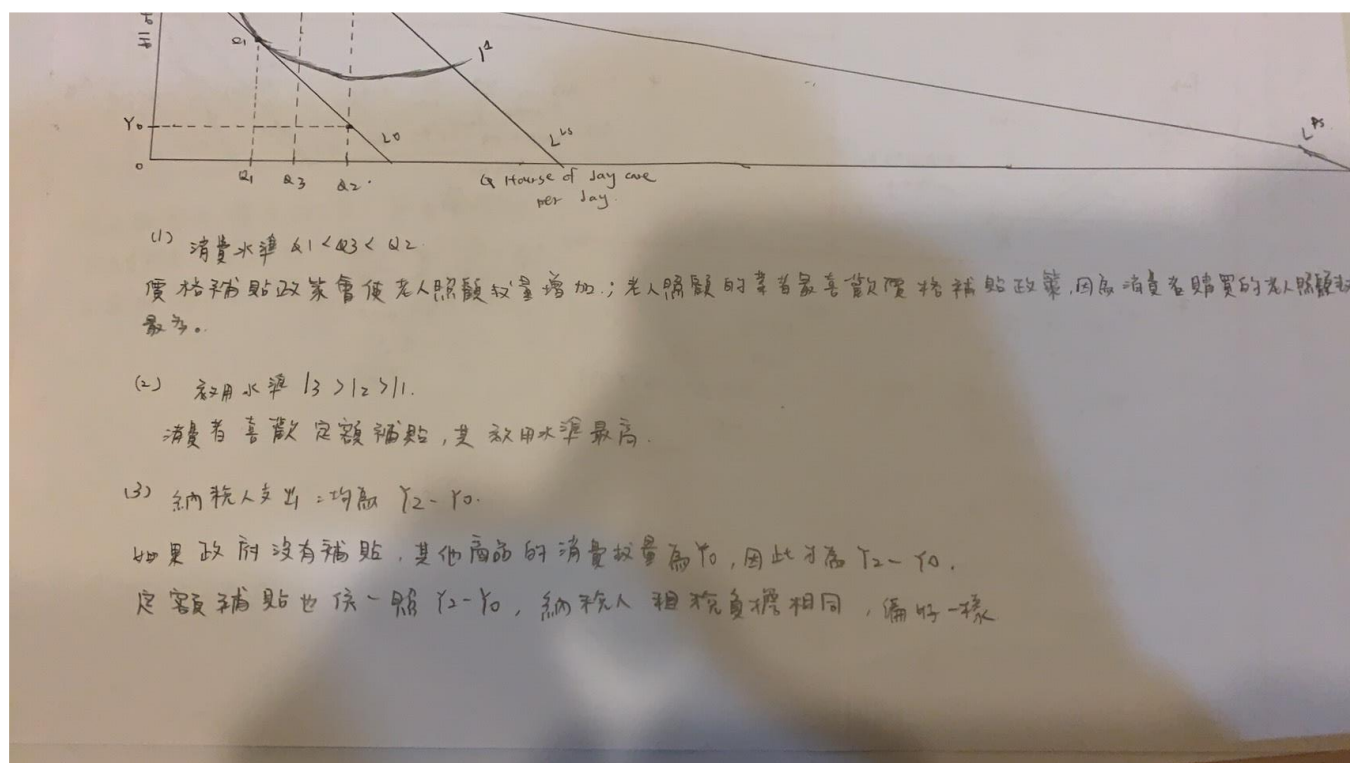 e1
I^1
Y0
L0
L^LS
L^PS
0
Q1 Q3 Q2
Q Hourse of day care
per day.
(1) 消費水準 Q1 < Q3 < Q2
價格補貼政策會使老人照顧數量增加；老人照顧的業者最喜歡價格補貼政策,因為消費者購買的老人照顧數
最多。
(2) 效用水準 I3 > I2 > I1.
消費者喜歡定額補貼,其效用水準最高.
(3) 納稅人支出：均為 Y2-Y0.
如果政府沒有補貼,其他商品的消費數量為Y0,因此才為Y2-Y0.
定額補貼也依照 Y2-Y0,納稅人租稅負擔相同,偏好一樣